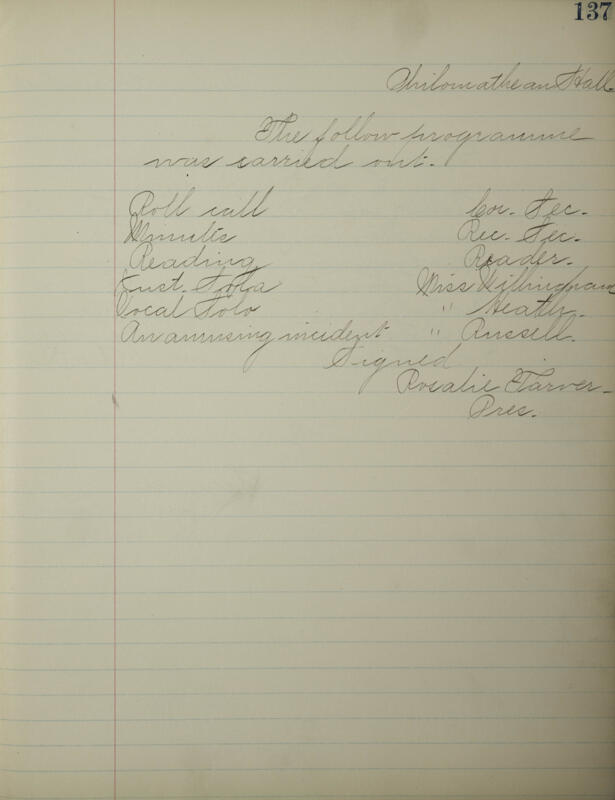 137
Philomathean Hall
The follow programme
was carried out.
Roll call Cor. Sec.
Minutes Rec. Sec.
Reading Reader.
Inst. Solo Miss Willingham
Vocal Solo " Heath.
An amusing incident " Russell.
Signed
Rosalie Tarver-
Pres.